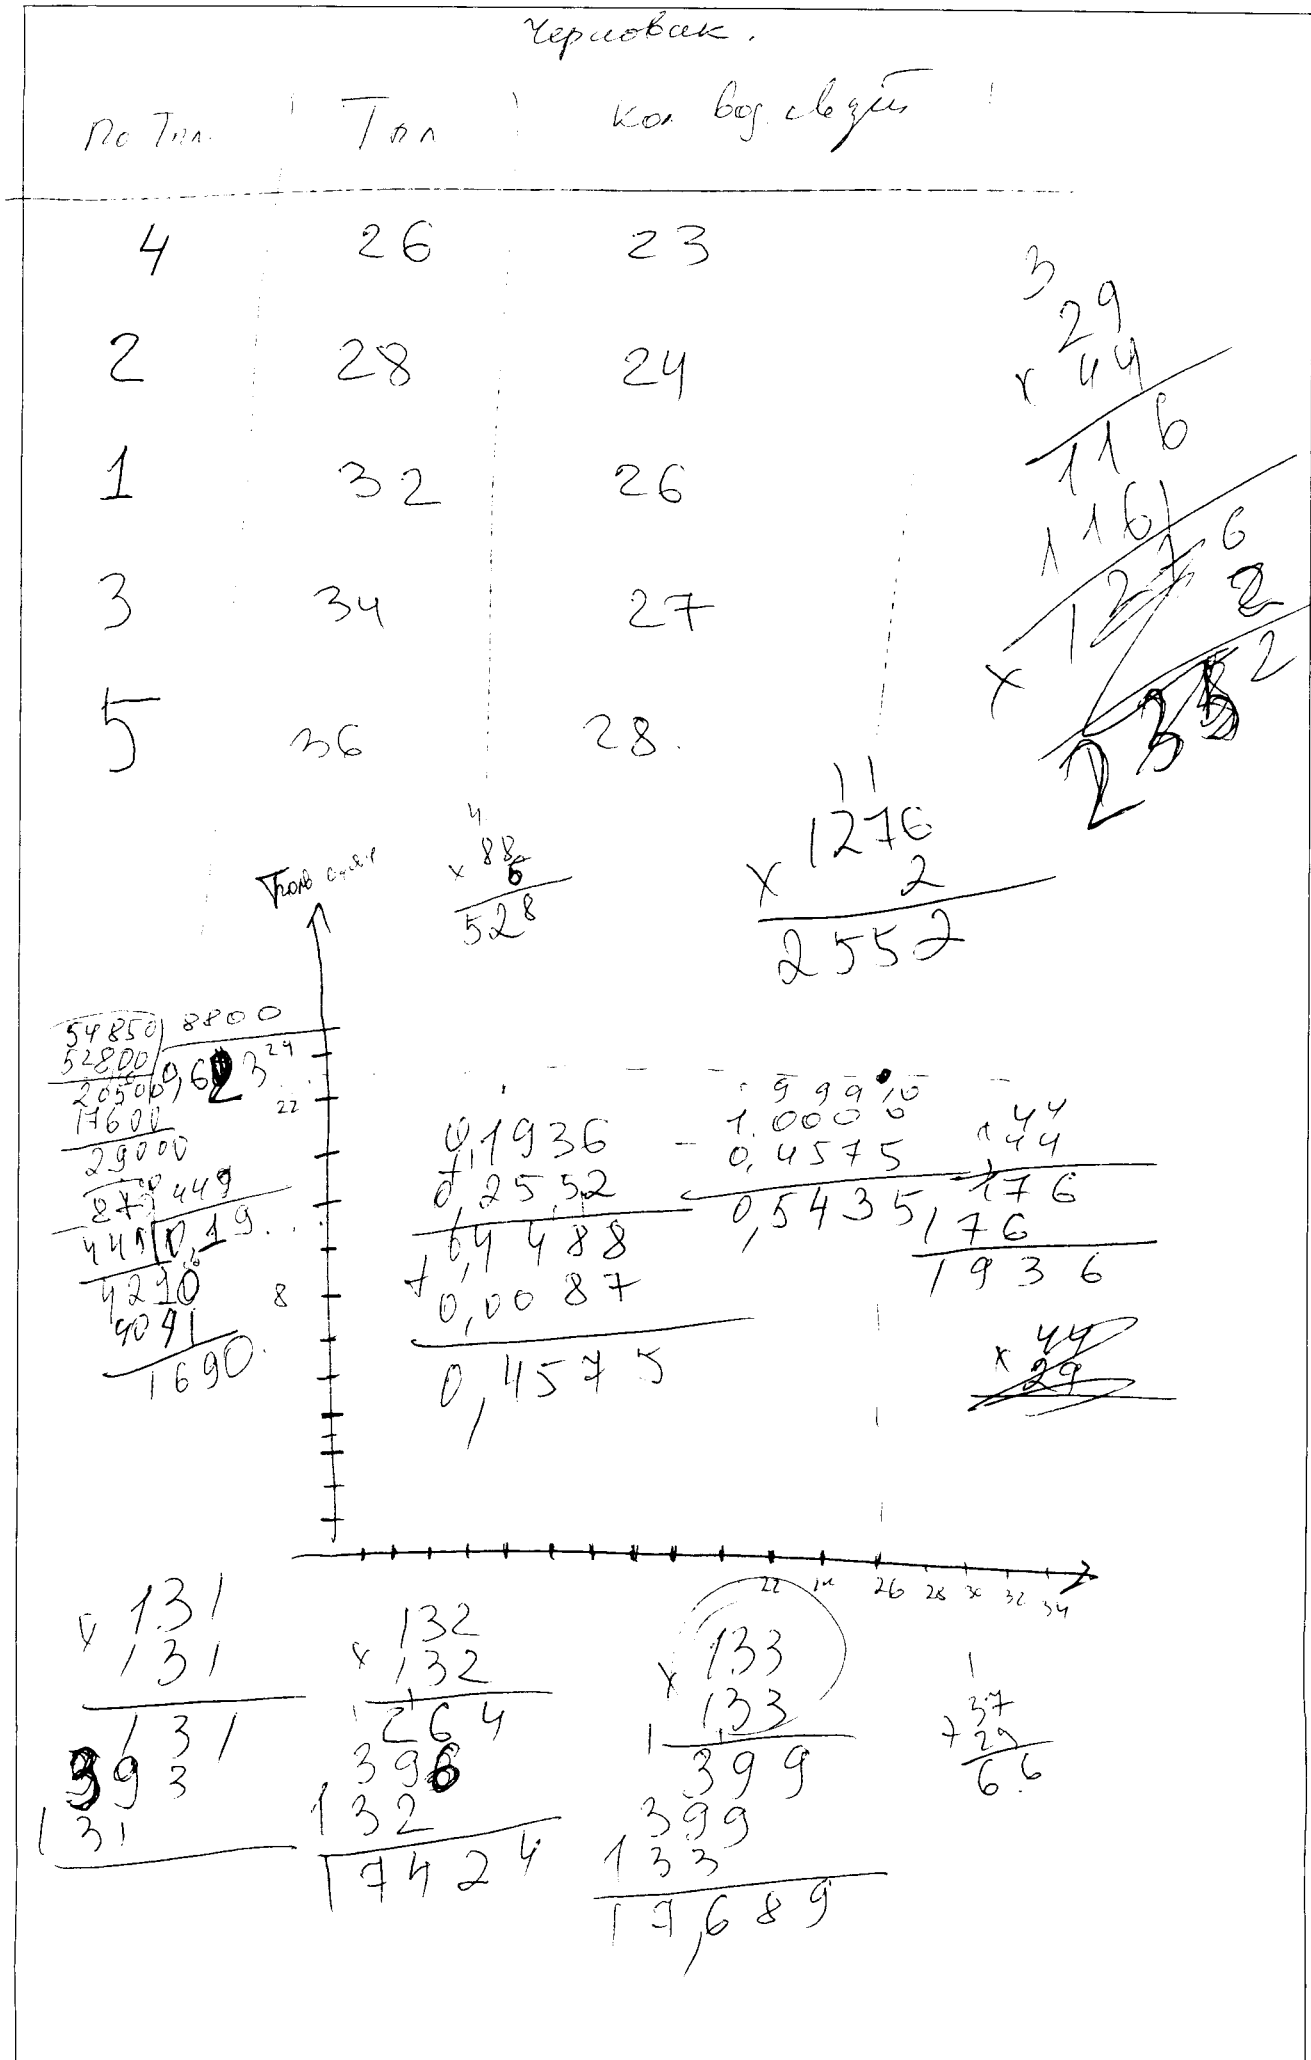 Черновик.
По Тпл. Тпл Кол вод. связей
4 26 23
2 28 24
1 32 26
3 34 27
5 36 28.
3
29
x 44
116
116
127 6
x 2
2
4
88
x 6
528
11
1276
x 2
2552
54850 8800
52800 0,623
20500
17600
29000
449
449 0,19.
4210
4041
1690.
24
22
8
0,1936
+
0,2552
0,4488
+
0,0087
0,4575
9 9 9 10
1.0000
- 0,4575
0,5435
44
x 44
176
176
1936
44
x 29
22 26 28 30 32 34
131
x 131
131
393
131
132
x 132
264
396
132
17424
133
x 1,33
399
399
133
17,689
1
37
+ 29
66